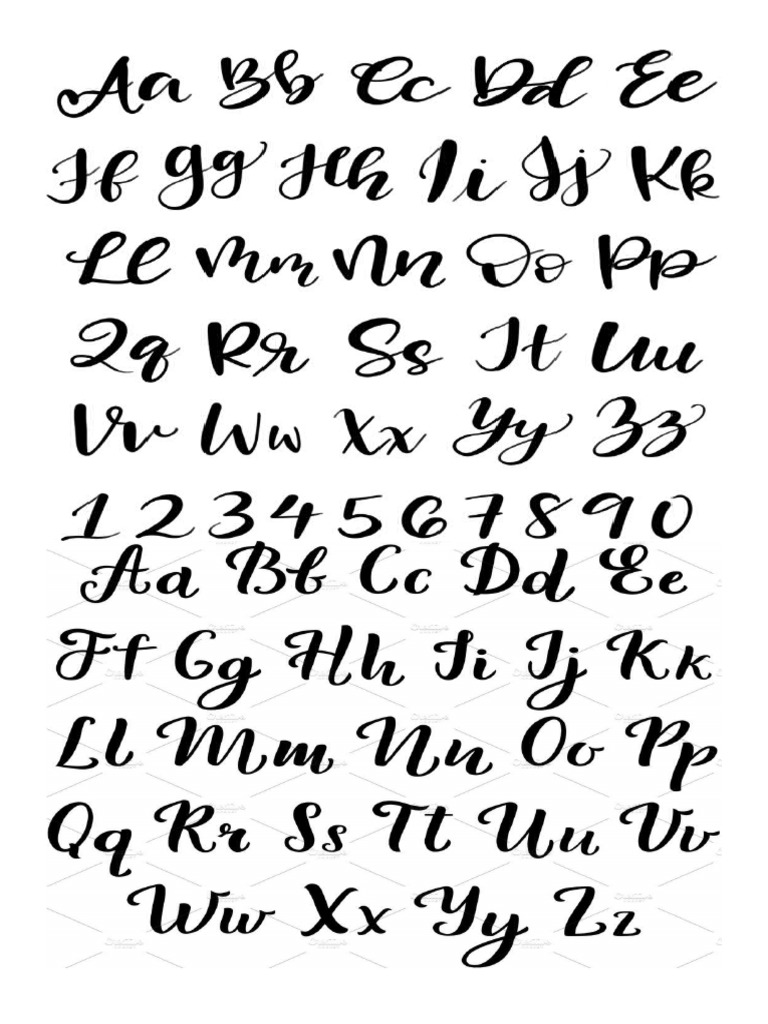 Aa Bb Cc Dd Ee
Ff Gg Hh Ii Jj Kk
Ll Mm Nn Oo Pp
Qq Rr Ss Tt Uu
Vv Ww Xx Yy Zz
1 2 3 4 5 6 7 8 9 0
Aa Bb Cc Dd Ee
Ff Gg Hh Ii Jj Kk
Ll Mm Nn Oo Pp
Qq Rr Ss Tt Uu Vv
Ww Xx Yy Zz